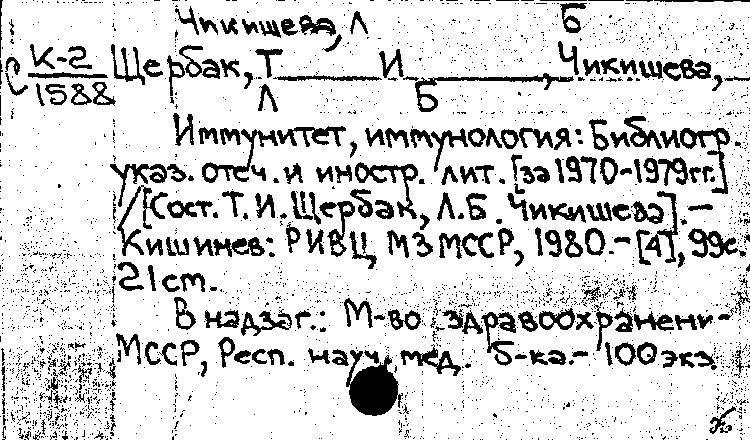 Чикишева, Л Б
С К-2 Щербак, Т И , Чикишева,
1588 Л Б
Иммунитет, иммунология: Библиогр.
указ. отеч. и иностр. лит. [за 1970-1979гг.]
/[Сост. Т. И. Щербак, Л. Б. Чикишева]. —
Кишинев: РИВЦ МЗ МССР, 1980. — [4], 99с.
21 cm.
В надзаг.: М-во здравоохранени-
МССР, Респ. науч. мед. б-ка. — 100 экз.